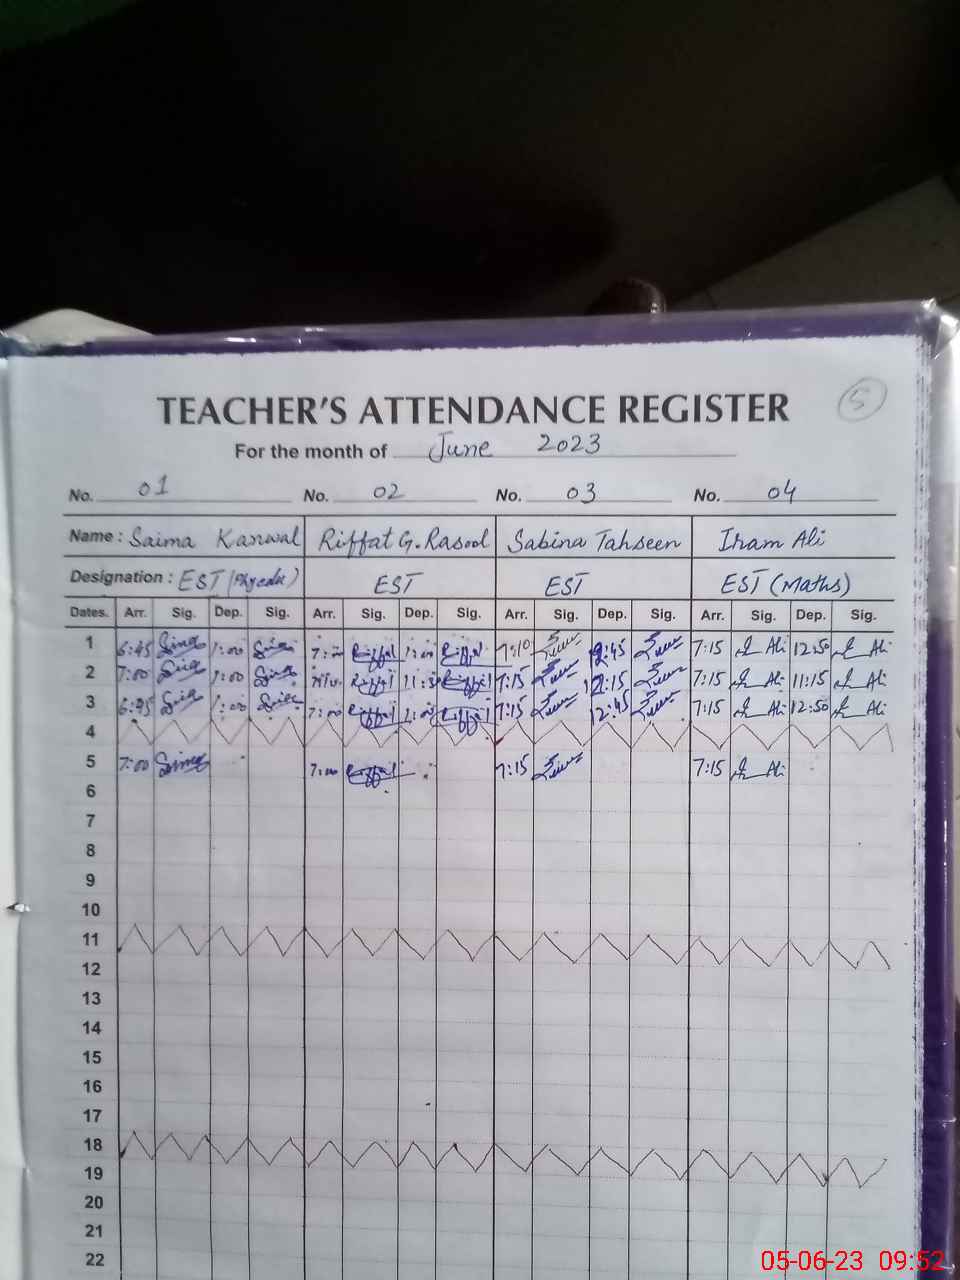 TEACHER'S ATTENDANCE REGISTER
5
For the month of June 2023
No. 01 No. 02 No. 03 No. 04
Name : Saima Kanwal Riffat G. Rasool Sabina Tahseen Iram Ali
Designation : EST EST EST EST (Maths)
Dates. Arr. Sig. Dep. Sig. Arr. Sig. Dep. Sig. Arr. Sig. Dep. Sig. Arr. Sig. Dep. Sig.
1 6:45 1:00 7:00 Riffat 1:00 Riffat 7:10 12:45 7:15 I Ali 12:50 I Ali
2 7:00 1:00 Riffat Riffat 7:15 12:15 7:15 I Ali 11:15 I Ali
3 6:45 1:00 7:00 Riffat 1:00 Riffat 7:15 12:45 7:15 I Ali 12:50 I Ali
4
5 7:00 7:00 Riffat 7:15 7:15 I Ali
6
7
8
9
10
11
12
13
14
15
16
17
18
19
20
21
22
05-06-23 09:52